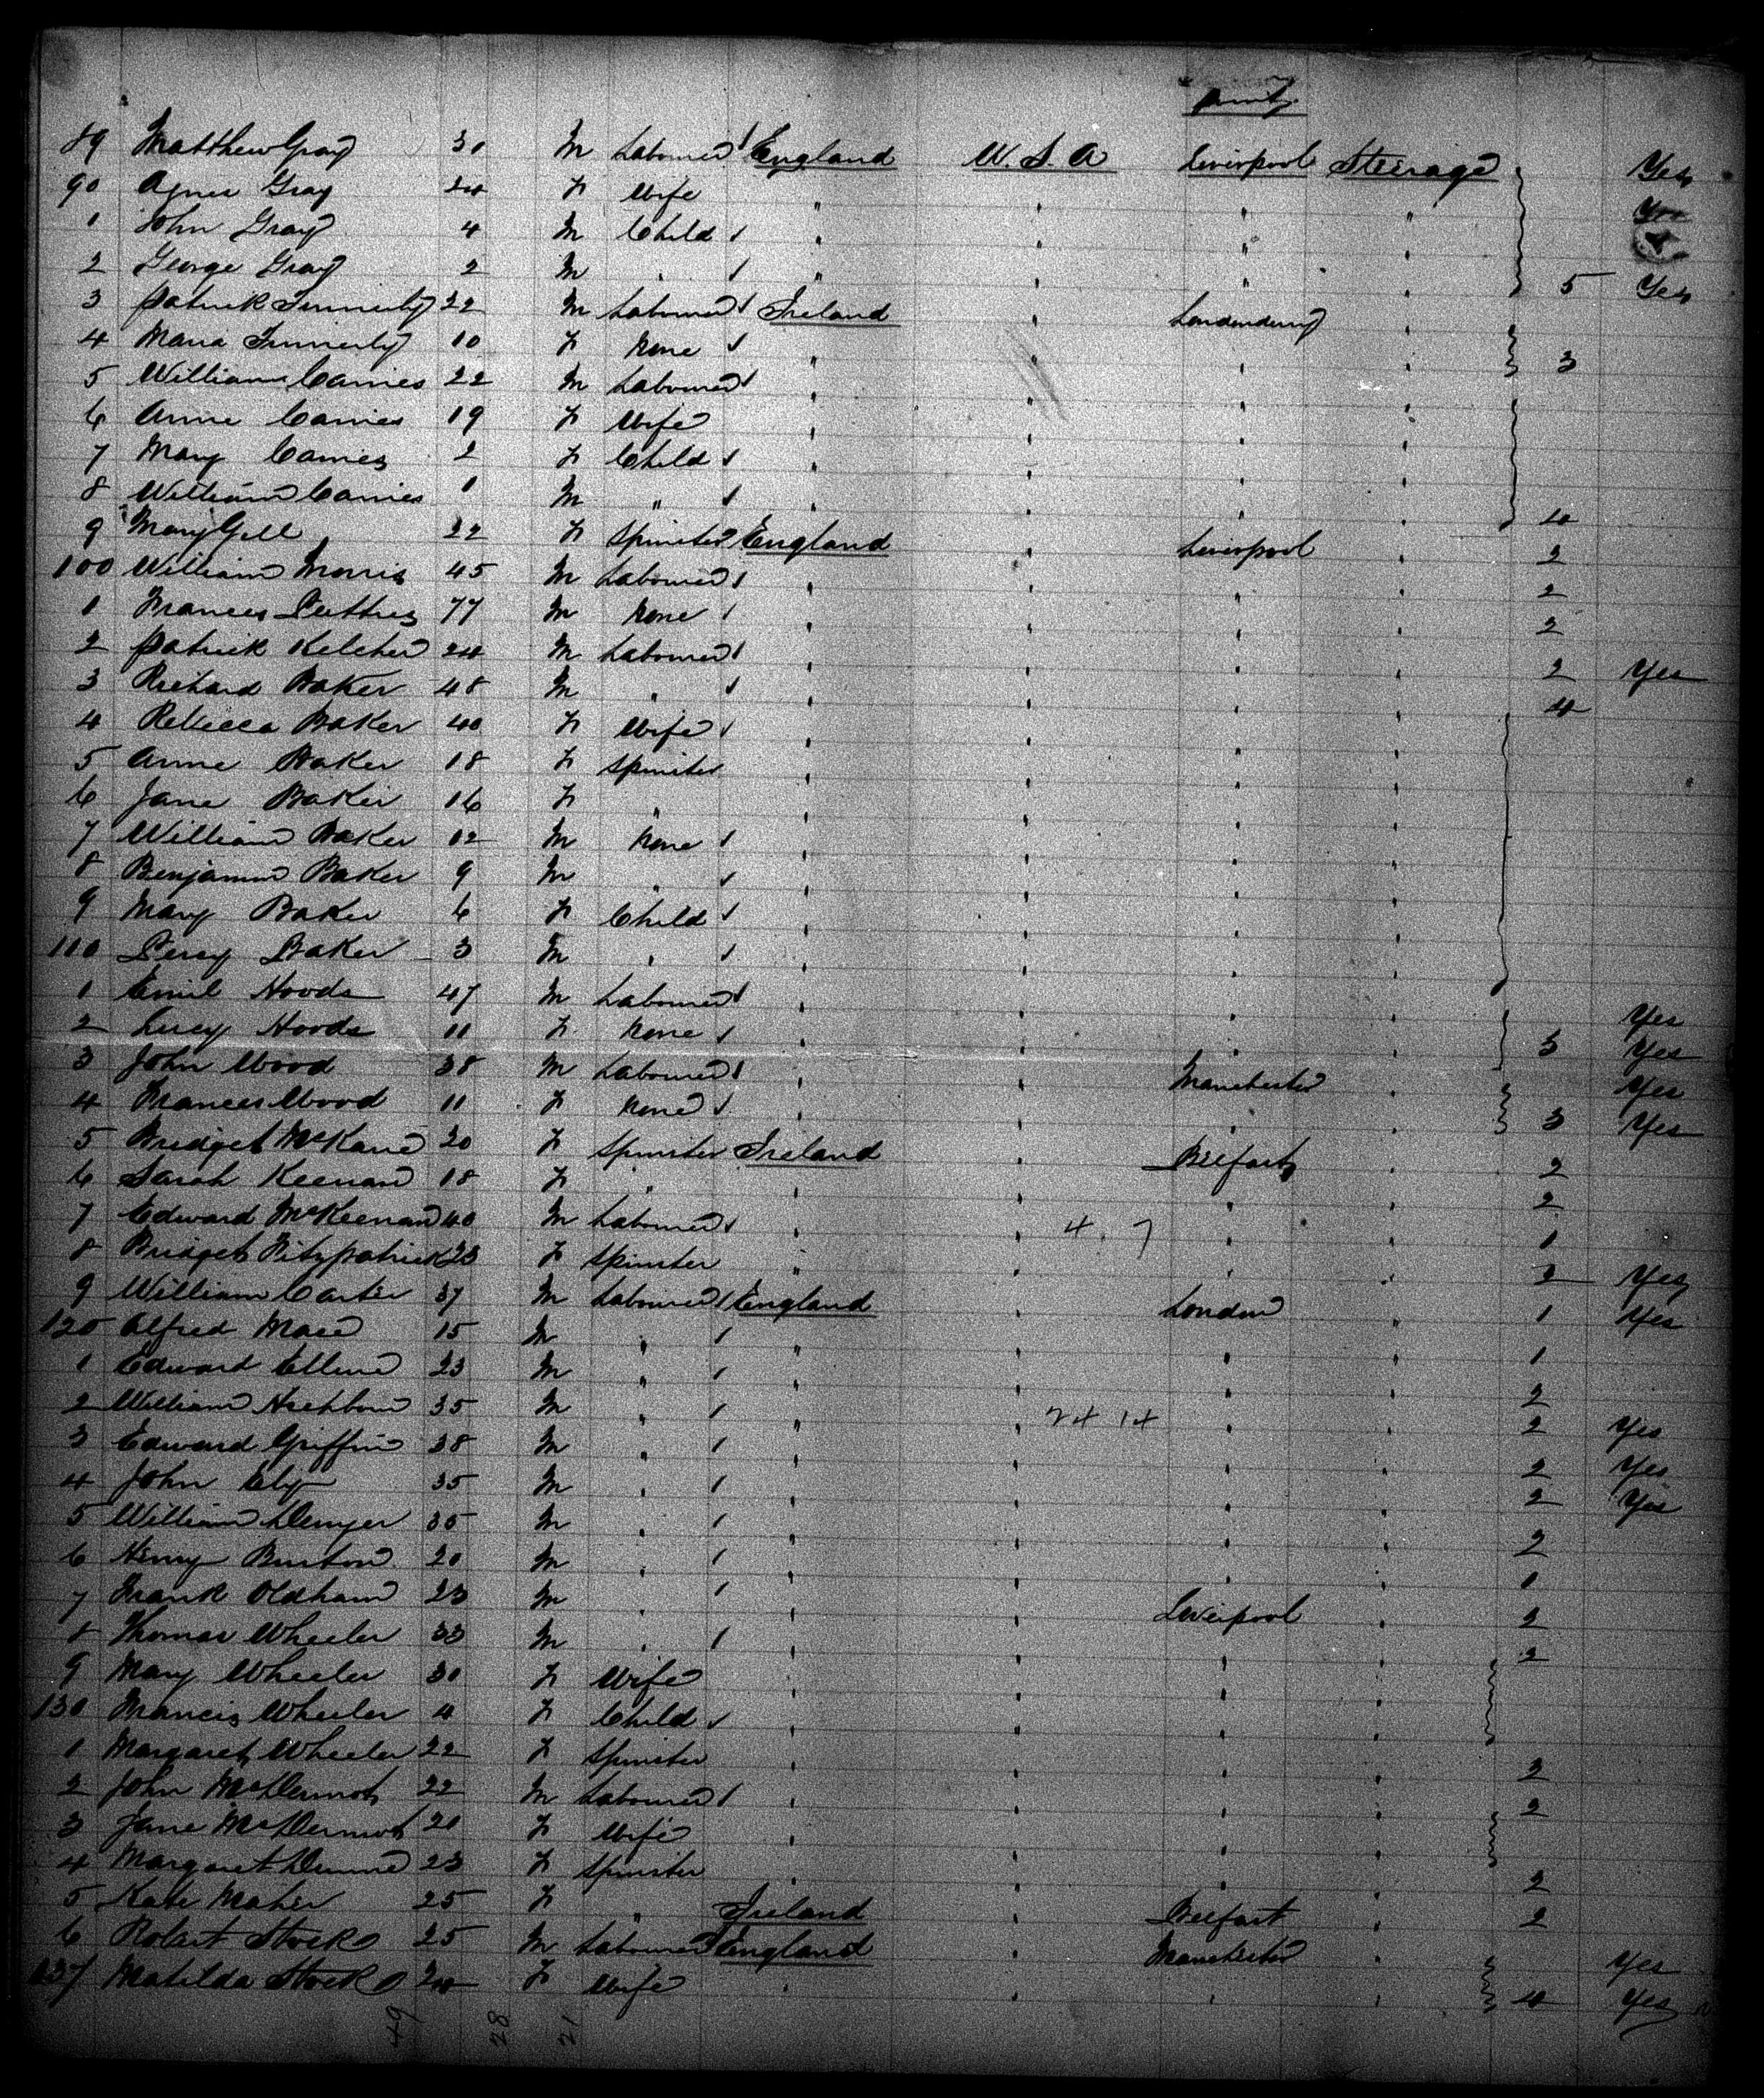 family
89 Matthew Gray 30 M Labourer England U.S.A Liverpool Steerage Yes
90 Agnes Gray 24 F Wife " " " " Yes
1 John Gray 4 M Child " " " "
2 George Gray 2 M " " " " " 5 Yes
3 Patrick Finnerty 22 M Labourer Ireland " Londonderry "
4 Maria Finnerty 10 F None " " " " 3
5 William Carnies 22 M Labourer " " " "
6 Anne Carnies 19 F Wife " " " "
7 Mary Carnies 2 F Child " " " "
8 William Carnies 1 M " " " " " 4
9 Mary Gell 22 F Spinster England " Liverpool " 2
100 William Morris 45 M Labourer " " " " 2
1 Frances 77 M None " " " " 2
2 Patrick Keleher 24 M Labourer " " " " 2 Yes
3 Richard Baker 48 M " " " " " 4
4 Rebecca Baker 40 F Wife " " " "
5 Anne Baker 18 F Spinster " " " "
6 Jane Baker 16 F " " " " "
7 William Baker 12 M None " " " "
8 Benjamin Baker 9 M " " " " "
9 Mary Baker 6 F Child " " " "
110 Percy Baker 3 M " " " " "
1 Emil Hoods 47 M Labourer " " " " Yes
2 Lucy Hoods 11 F None " " " " 3 Yes
3 John Wood 38 M Labourer " " Manchester " Yes
4 Frances Wood 11 F None " " " " 3 Yes
5 Bridget McKane 20 F Spinster Ireland " Belfast " 2
6 Sarah Keenan 18 F " " " " " 2
7 Edward McKeenan 40 M Labourer " " 4. 7 " " 1
8 Bridget Fitzpatrick 23 F Spinster " " " " 2 Yes
9 William Carter 37 M Labourer England " London " 1 Yes
120 Alfred Mace 15 M " " " " " 1
1 Edward 23 M " " " " " 2
2 William 35 M " " " 24 14 " " 2 Yes
3 Edward Griffin 38 M " " " " " 2 Yes
4 John Ely 35 M " " " " " 2 Yes
5 William Denyer 35 M " " " " " 2
6 Henry Burton 20 M " " " " " 1
7 Frank Oldham 23 M " " " Liverpool " 2
8 Thomas Wheeler 33 M " " " " " 2
9 Mary Wheeler 30 F Wife " " " "
130 Francis Wheeler 4 F Child " " " "
1 Margaret Wheeler 22 F Spinster " " " " 2
2 John McDermot 22 M Labourer " " " " 2
3 Jane McDermot 20 F Wife " " " "
4 Margaret Dunne 23 F Spinster " " " " 2
5 Kate Maher 25 F " Ireland " Belfast " 2
6 Robert Stock 25 M Labourer England " Manchester " Yes
137 Matilda Stock 24 F Wife " " " " 4 Yes
49 28 21